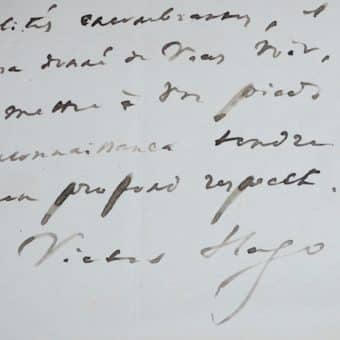 lités embarrasser, et
ra donné de Vous voir,
mettre à vos pieds
econnaissance tendre
mon profond respect.
Victor Hugo